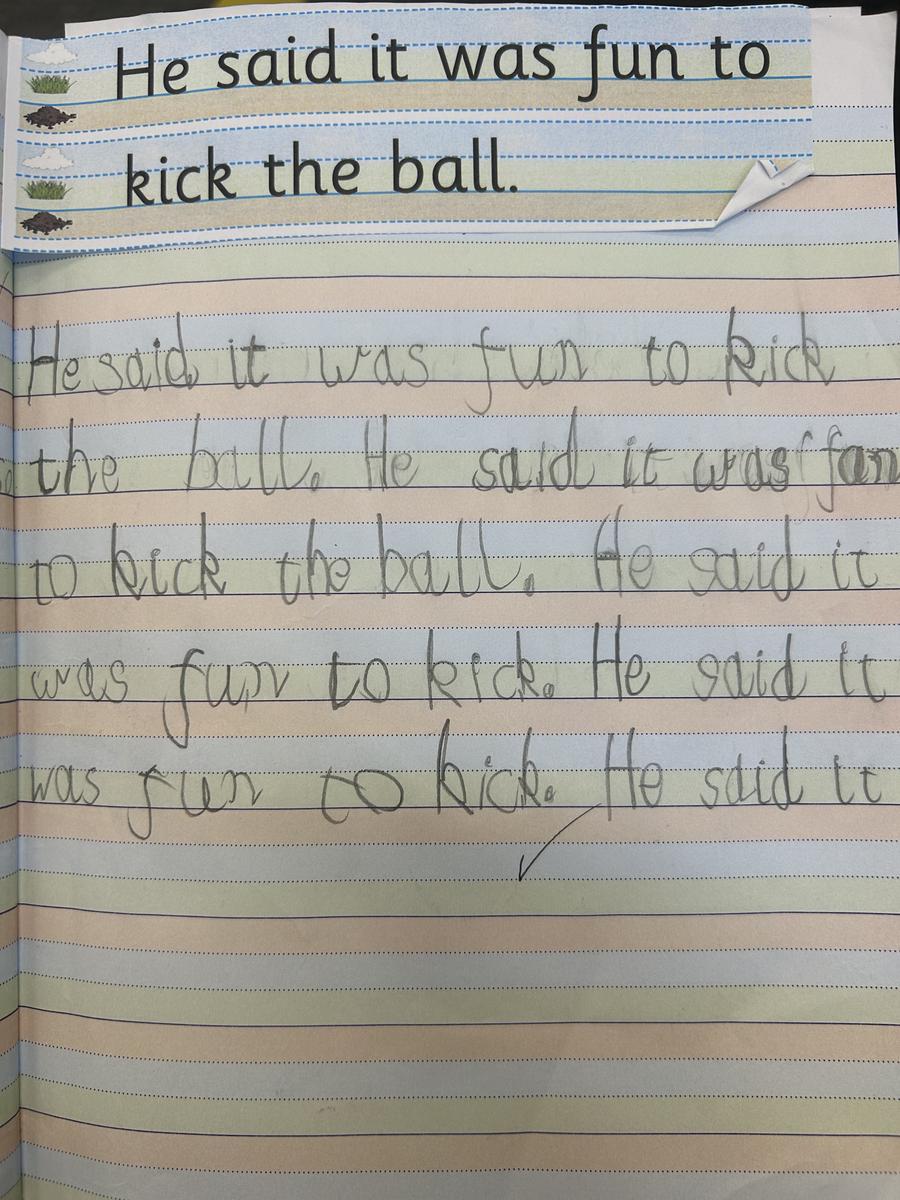 He said it was fun to
kick the ball.
He said it was fun to kick
the ball. He said it was fan
to kick the ball. He said it
was fun to kick. He said it
was fun to kick. He said it